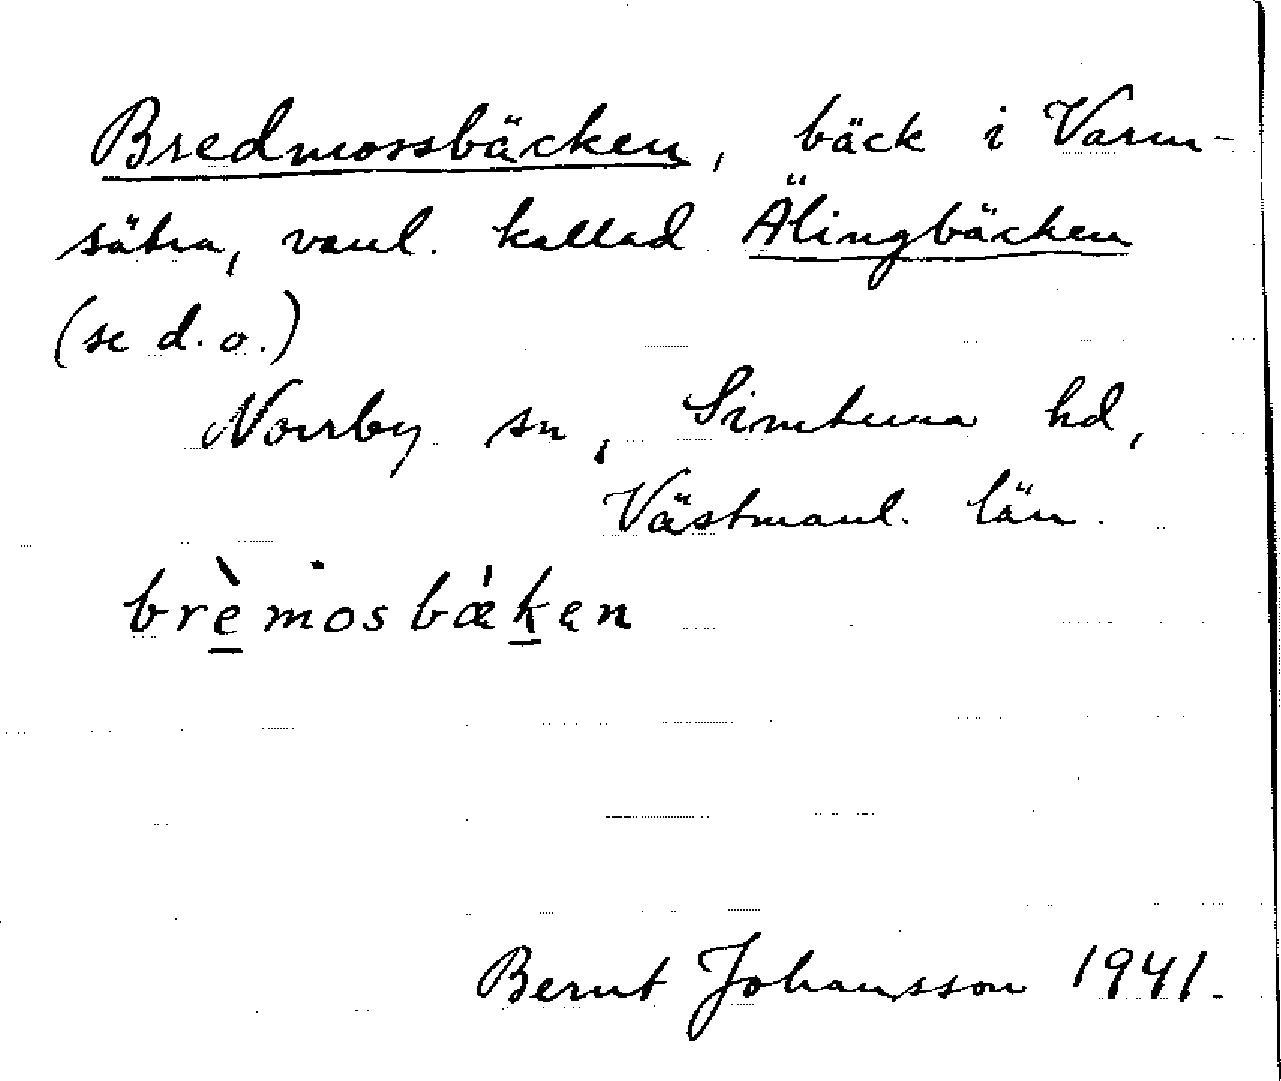 Bredmossbäcken, bäck i Varm-
sätra, vanl. kallad Älingbäcken
(se d.o.)
Norrby sn, Simtuna hd,
Västmanl. län.
brèmosbækən
Bernt Johansson 1941.